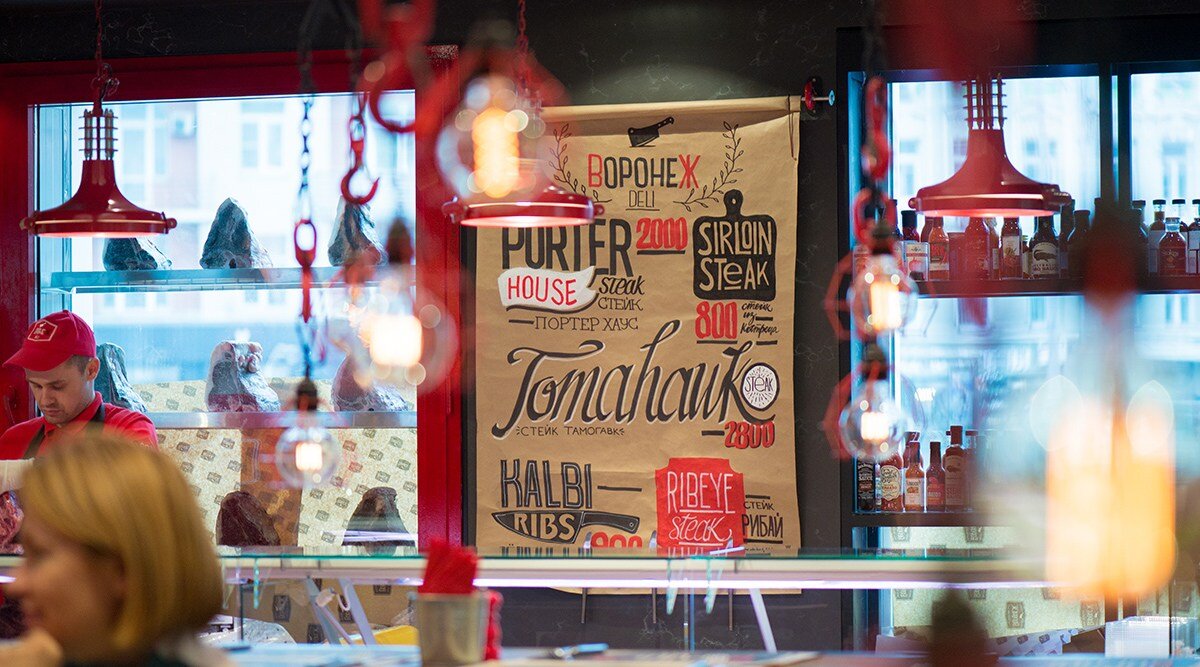 ВОРОНЕЖ
DELI
PORTER 2000
HOUSE steak
СТЕЙК
ПОРТЕР ХАУС
SIRLOIN
STEAK
800 стейк
из
Костреца
Tomahawk STEAK
СТЕЙК ТАМОГАВК
2800
KALBI
RIBS
RIBEYE
steak
СТЕЙК
РИБАЙ